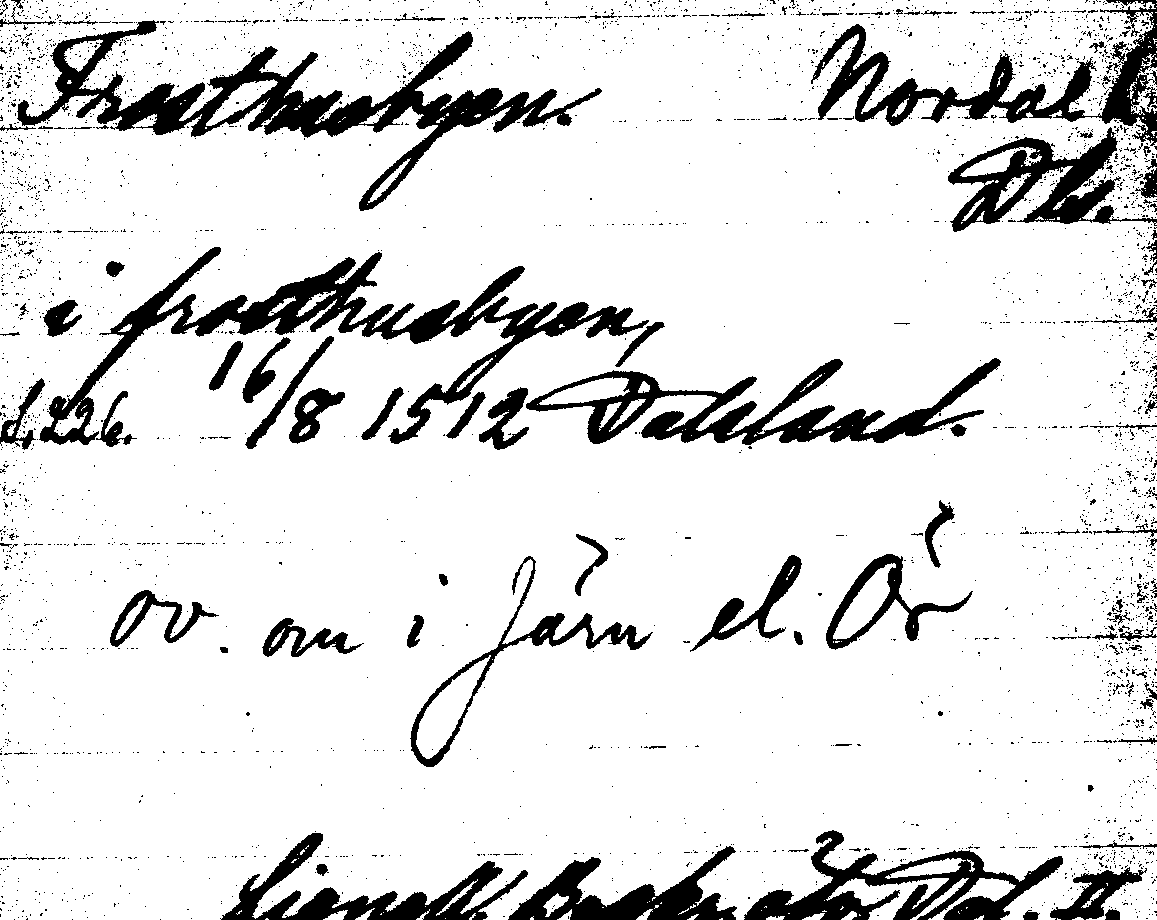 Frosthusbyen. Nordal h.
Dls.
i frosthusbyen,
s. 226. 16/8 1512 Dalsland.
ov. om i Järn el. Ör
Dal. II.